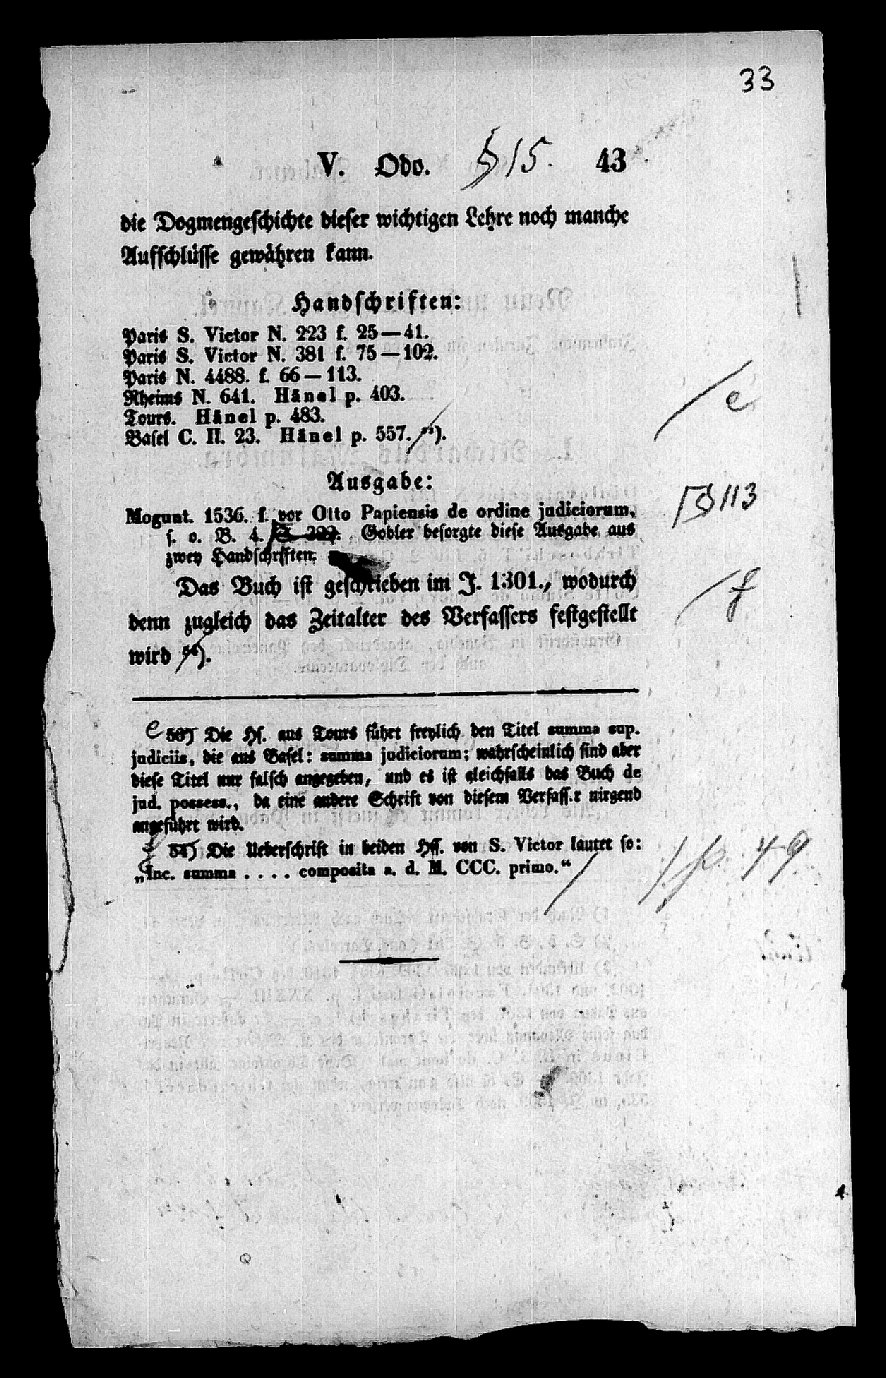 33
V. Odo. § 15. 43
die Dogmengeschichte dieser wichtigen Lehre noch manche
Aufschlüsse gewähren kann.
Handschriften:
Paris S. Victor N. 223 f. 25—41.
Paris S. Victor N. 381 f. 75—102.
Paris N. 4488. f. 66—113.
Rheims N. 641. Hänel p. 403.
Tours. Hänel p. 483.
Basel C. II. 23. Hänel p. 557. ). e
Ausgabe:
Mogunt. 1536. f. vor Otto Papiensis de ordine judiciorum,
s. o. B. 4. S. 322. Gobler besorgte diese Ausgabe aus § 113
zwey Handschriften.
Das Buch ist geschrieben im J. 1301., wodurch f
denn zugleich das Zeitalter des Verfassers festgestellt
wird ).
e Die Hs. aus Tours führt freylich den Titel summa sup.
judiciis, die aus Basel: summa judiciorum; wahrscheinlich sind aber
diese Titel nur falsch angegeben, und es ist gleichfalls das Buch de
jud. possess., da eine andere Schrift von diesem Verfasser nirgend
angeführt wird.
f Die Ueberschrift in beiden Hss. von S. Victor lautet so:
„Inc. summa .... composita a. d. M. CCC. primo.“